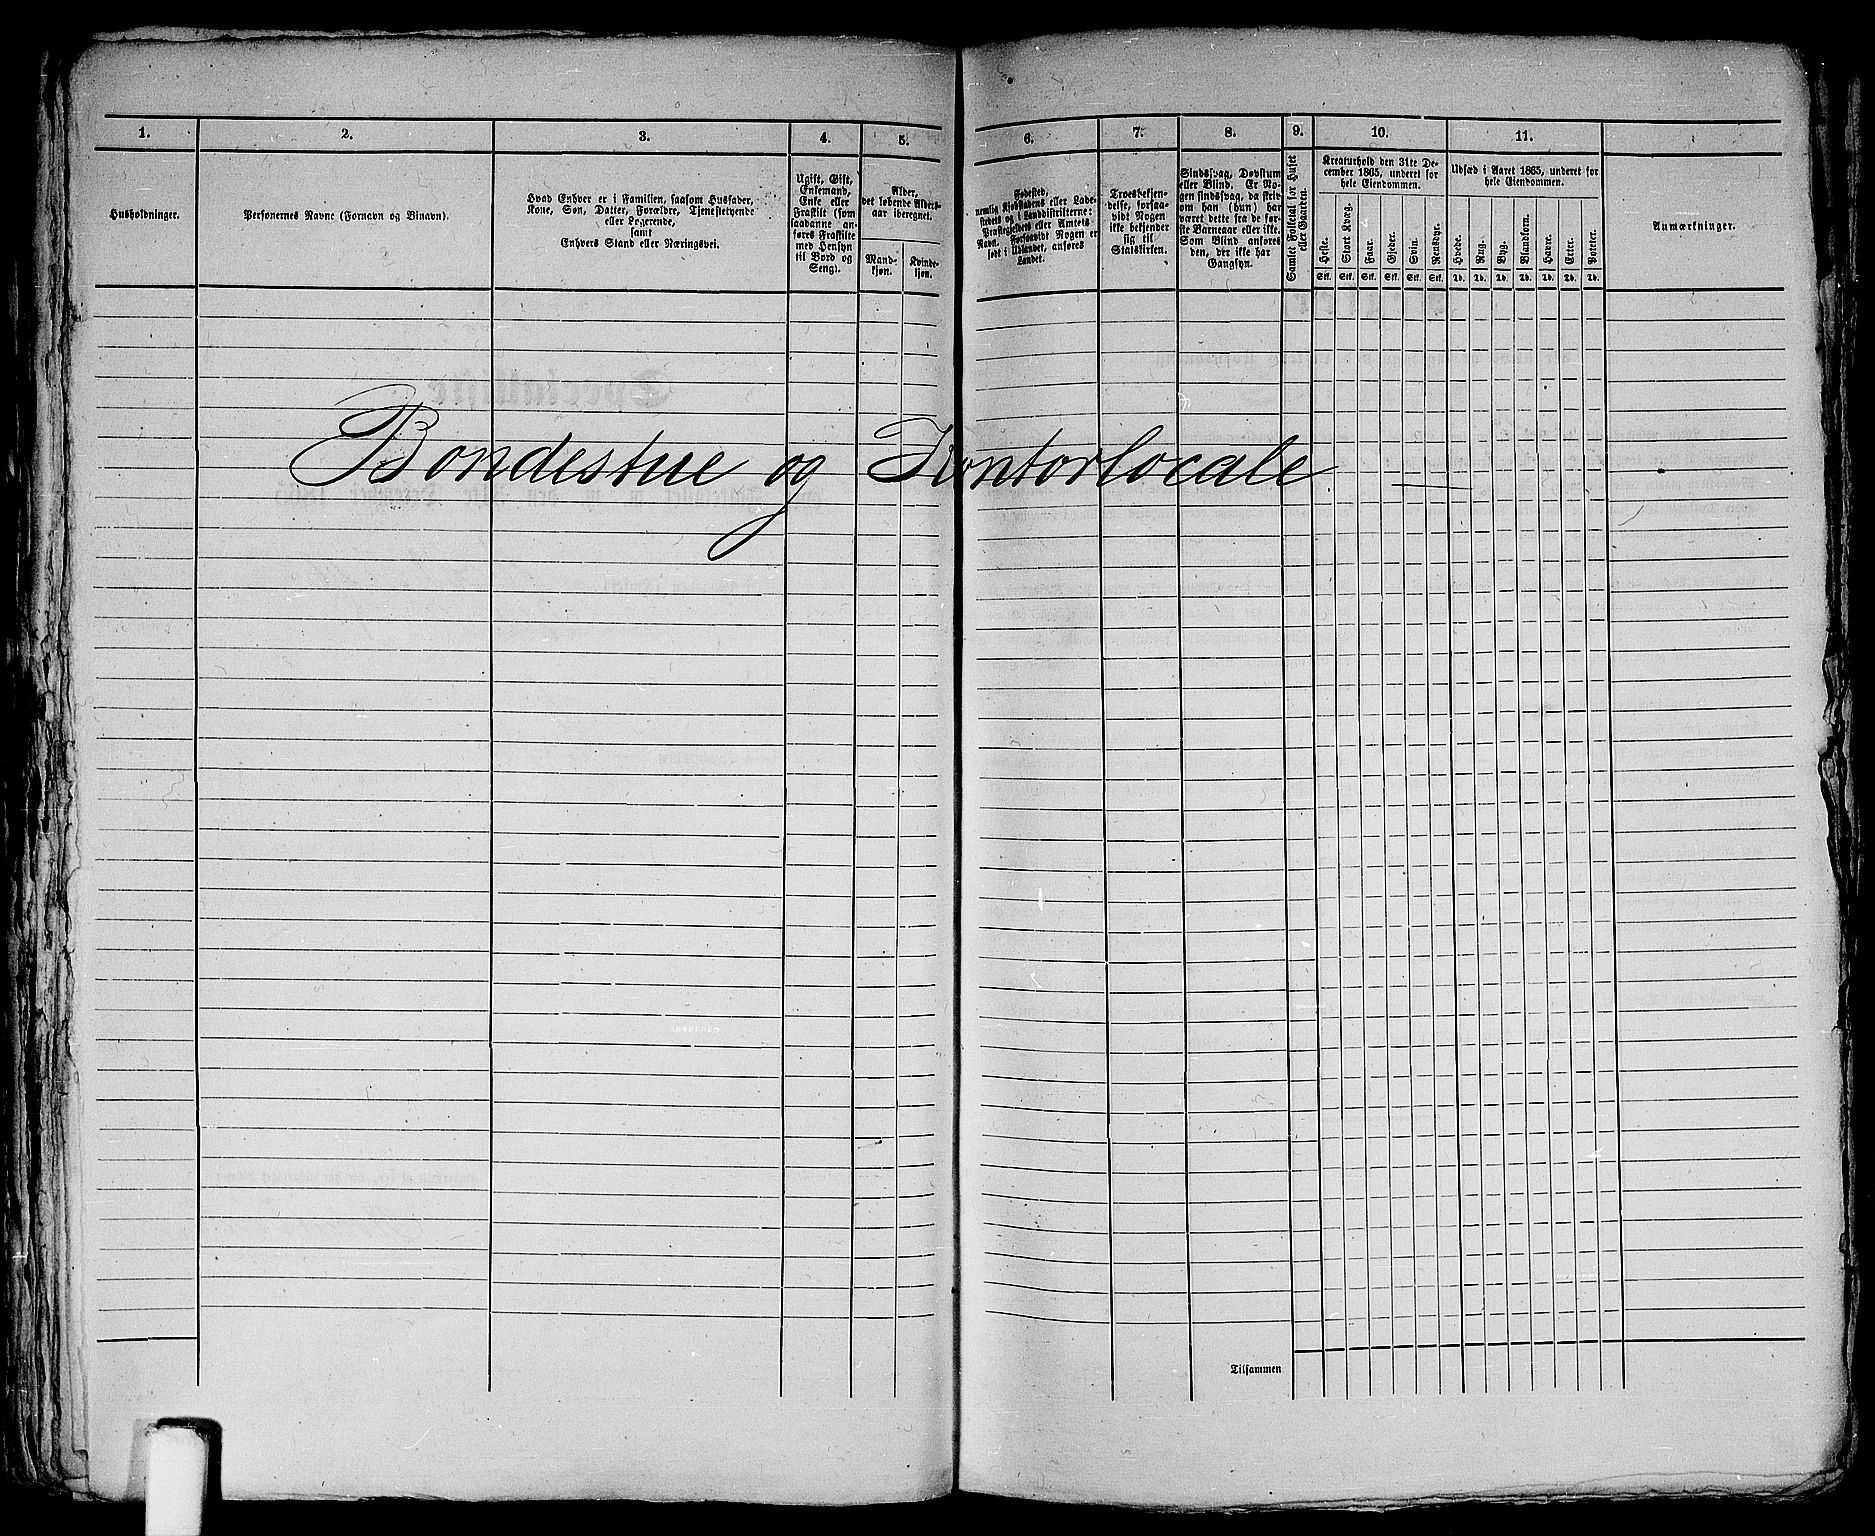 1. 2. 3. 4. 5. 6. 7. 8. 9. 10. 11.
Husholdninger.
Personernes Navne (Fornavn og Binavn).
Hvad Enhver er i Familien, saasom Husfader,
Kone, Søn, Datter, Forældre, Tjenestetyende
eller Logerende,
samt
Enhvers Stand eller Næringsvei.
Ugift, Gift,
Enkemand,
Enke eller
Fraskilt (som
saadanne an-
føres Fraskilte
med Hensyn
til Bord og
Seng).
Alder,
det løbende Alders-
aar iberegnet.
Mand-
kjøn.
Kvinde-
kjøn.
Fødested,
nemlig Kjøbstadens eller Lade-
stedets og i Landdistrikterne:
Præstegjeldets eller Amtets
Navn. Forsaavidt Nogen er
født i Udlandet, anføres
Landet.
Troesbekjen-
delse, forsaa-
vidt Nogen
ikke bekjender
sig til
Statskirken.
Sindssvag, Døvstum
eller Blind. Er No-
gen sindssvag, da skriv
om han (hun) har
været dette fra de før-
ste Barneaar eller ikke.
Som Blind anføres
den, der ikke har
Gangsyn.
Samlet Folketal for Huset
eller Gaarden.
Kreaturhold den 31te De-
cember 1865, underet for
hele Eiendommen.
Heste. Stort Kvæg. Faar. Gjeder. Svin. Rensdyr.
Stk. Stk. Stk. Stk. Stk. Stk.
Udsæd i Aaret 1865, underet for
hele Eiendommen.
Hvede. Rug. Byg. Blandkorn. Havre. Erter. Poteter.
Td. Td. Td. Td. Td. Td. Td.
Anmærkninger.
Bondestue og Kontorlocale
Tilsammen